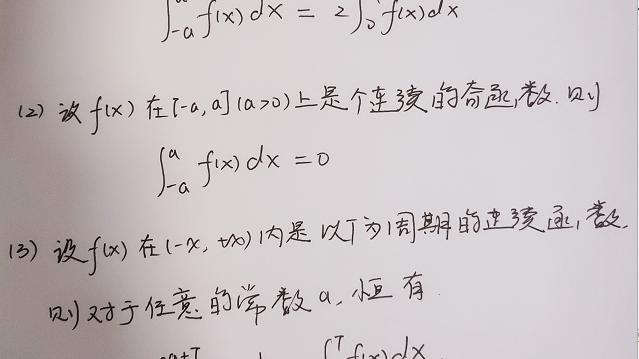 ∫_{-a}^{a} f(x) dx = 2∫_0 f(x) dx
(2) 设 f(x) 在 [-a, a] (a>0) 上是个连续的奇函数. 则
∫_{-a}^{a} f(x) dx = 0
(3) 设 f(x) 在 (-∞, +∞) 内是以T为周期的连续函数.
则对于任意的常数 a, 恒有
a+T ∫^T f(x) dx